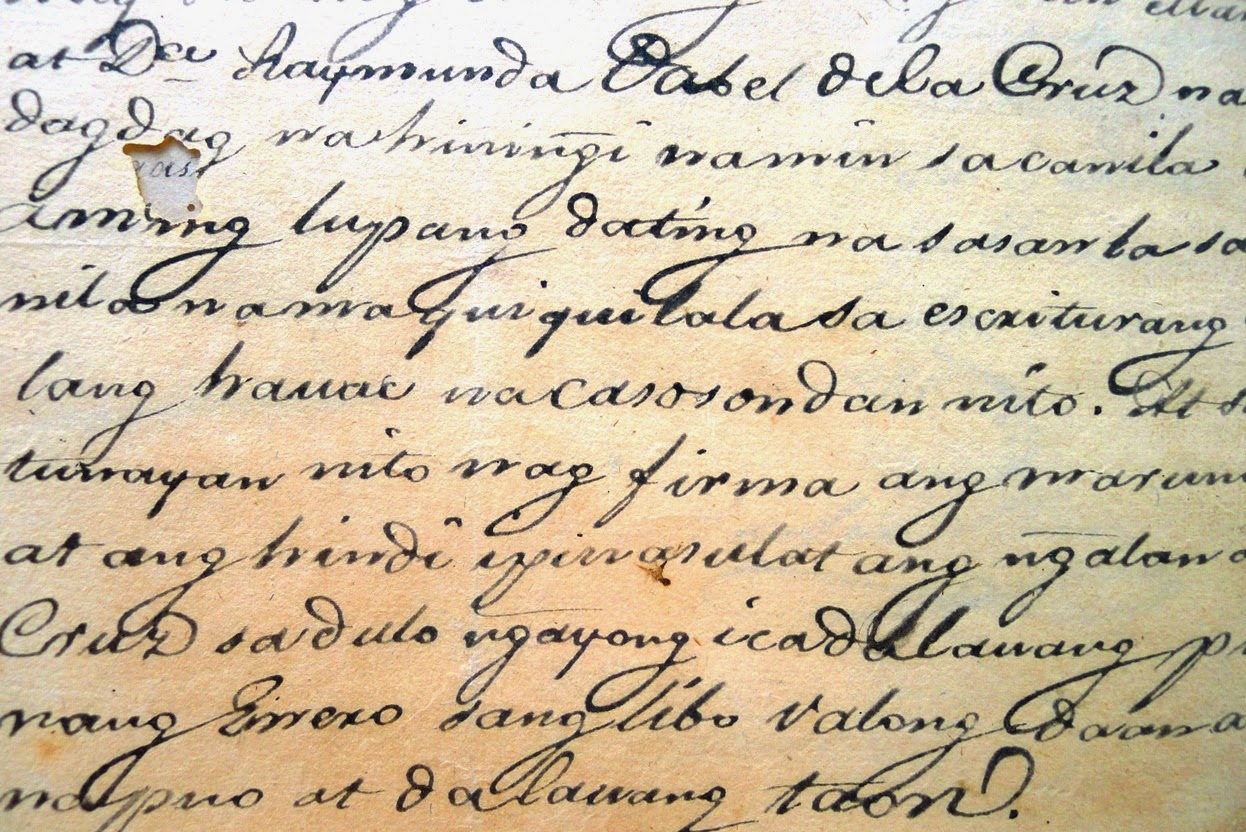 at Da Raymunda Ysabel dela Cruz na
dagdag na hinin̄gi namin sa canila
aming lupang dating na sasanla sa
nila na maquiquilala sa escriturang
lang hauac na casosondan nito. At sa
tunayan nito nag firma ang marun
at ang hindi ipinasulat ang n̄galan a
Cruz sa dulo n̄gayong icadalauang p
nang Enero sang libo valong daan a
na puo at dalauang taon.